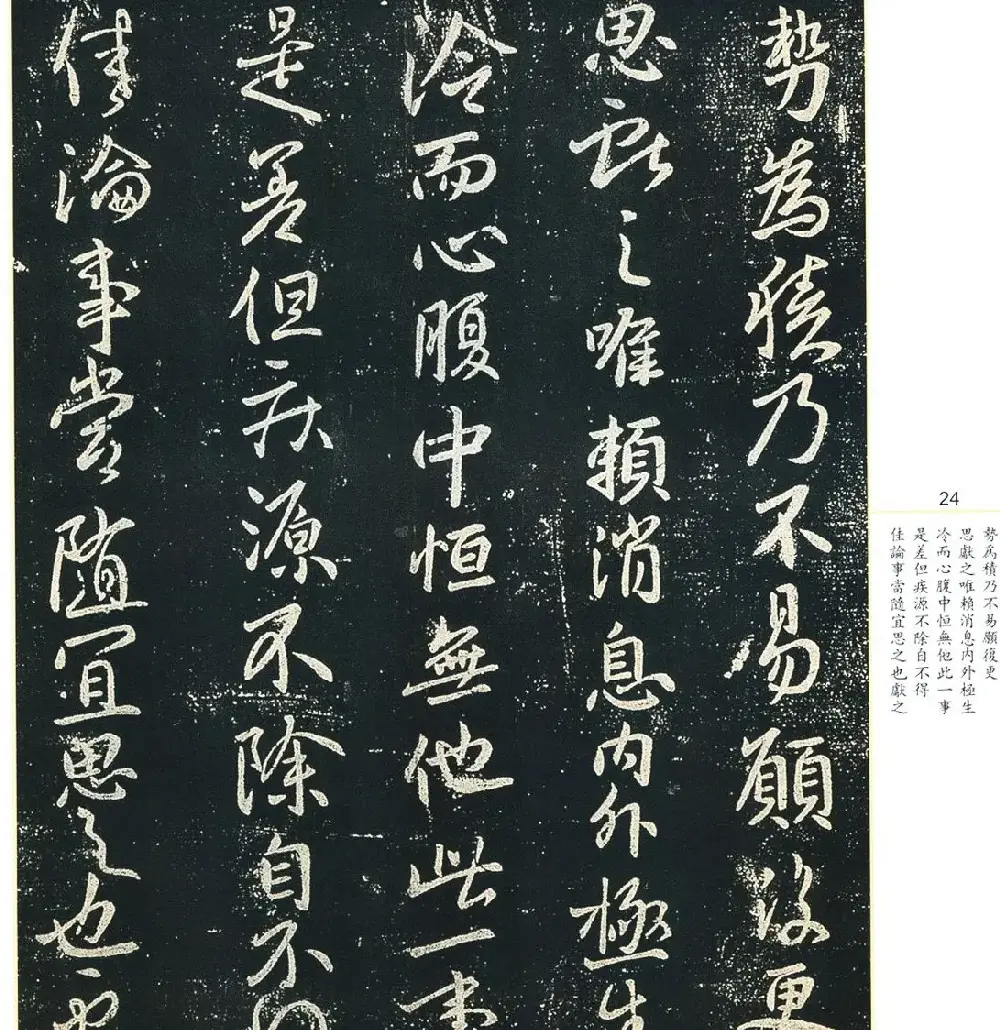 勢為積乃不易願復更
思獻之唯賴消息内外極生
冷而心腹中恒無他此一事
是差但疾源不除自不得
佳論事當隨宜思之也
24
勢為積乃不易願復更
思獻之唯賴消息内外極生
冷而心腹中恒無他此一事
是差但疾源不除自不得
佳論事當隨宜思之也獻之